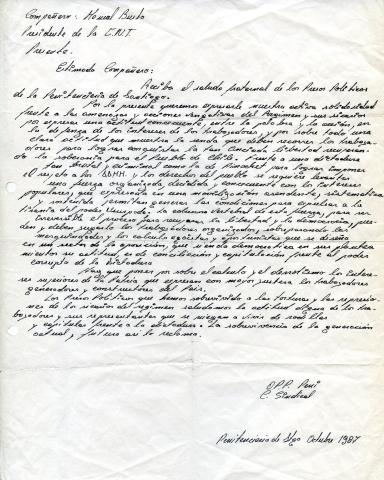 Compañero: Manuel Busto
Presidente de la C.N.T.
Presente.
Estimado Compañero:
Reciba el saludo fraternal de los Presos Políticos
de la Penitenciaria de Santiago.
Por la presente queremos expresarle nuestra activa solidaridad
frente a las amenazas y acciones vengativas del Regimen y sus
por expresar una actitud consecuente, entre la palabra y la acción, en
la defensa de los intereses de los trabajadores, y por sobre todo una
clara actitud que muestra la senda que deben recorrer los trabaja-
dores para lograr conquistar la Pan Libertad
de la soberania para el Pueblo de Chile. Frente a una dictadura
tan brutal y criminal como la de Pinochet para lograr imponer
el respeto a los DDHH. y los derechos del pueblo se requiere levantar
una fuerza organizada, decidida, consecuente con los intereses
populares, que expresada en una movilización ascendente, sistematica
y sostenida permitan generar las condiciones para expulsar a la
tirania del poder Usurpado. La columna vertebral de esta fuerza, para ser
el proceso para recuperar la libertad y la democracia, pue-
den y deben serlo los trabajadores organizados, sobrepasando las
mezquindades y los calculos y que se diseña
en un sector de la oposición, que siendo democratica en sus plantea-
mientos su actitud es de conciliación y capitulación frente al poder
corrupto de la Dictadura
Hay que poner por sobre el calculo y el derrotismo los intere-
ses superiores de la Patria que expresan con mayor justeza los trabajadores
generadores y constructores del Pais.
Los Presos Políticos que hemos sobrevivido a las torturas y las represio-
nes de la del regimen saludamos la actitud digna de los tra-
bajadores y sus representantes que se niegan a vivir de rodillas
y capitular frente a la dictadura. La sobrevivencia de la generación
actual y futura asi lo reclama.
O.P.P. Peni
C. Sindical
Penitenciaria de Stgo Octubre 1987